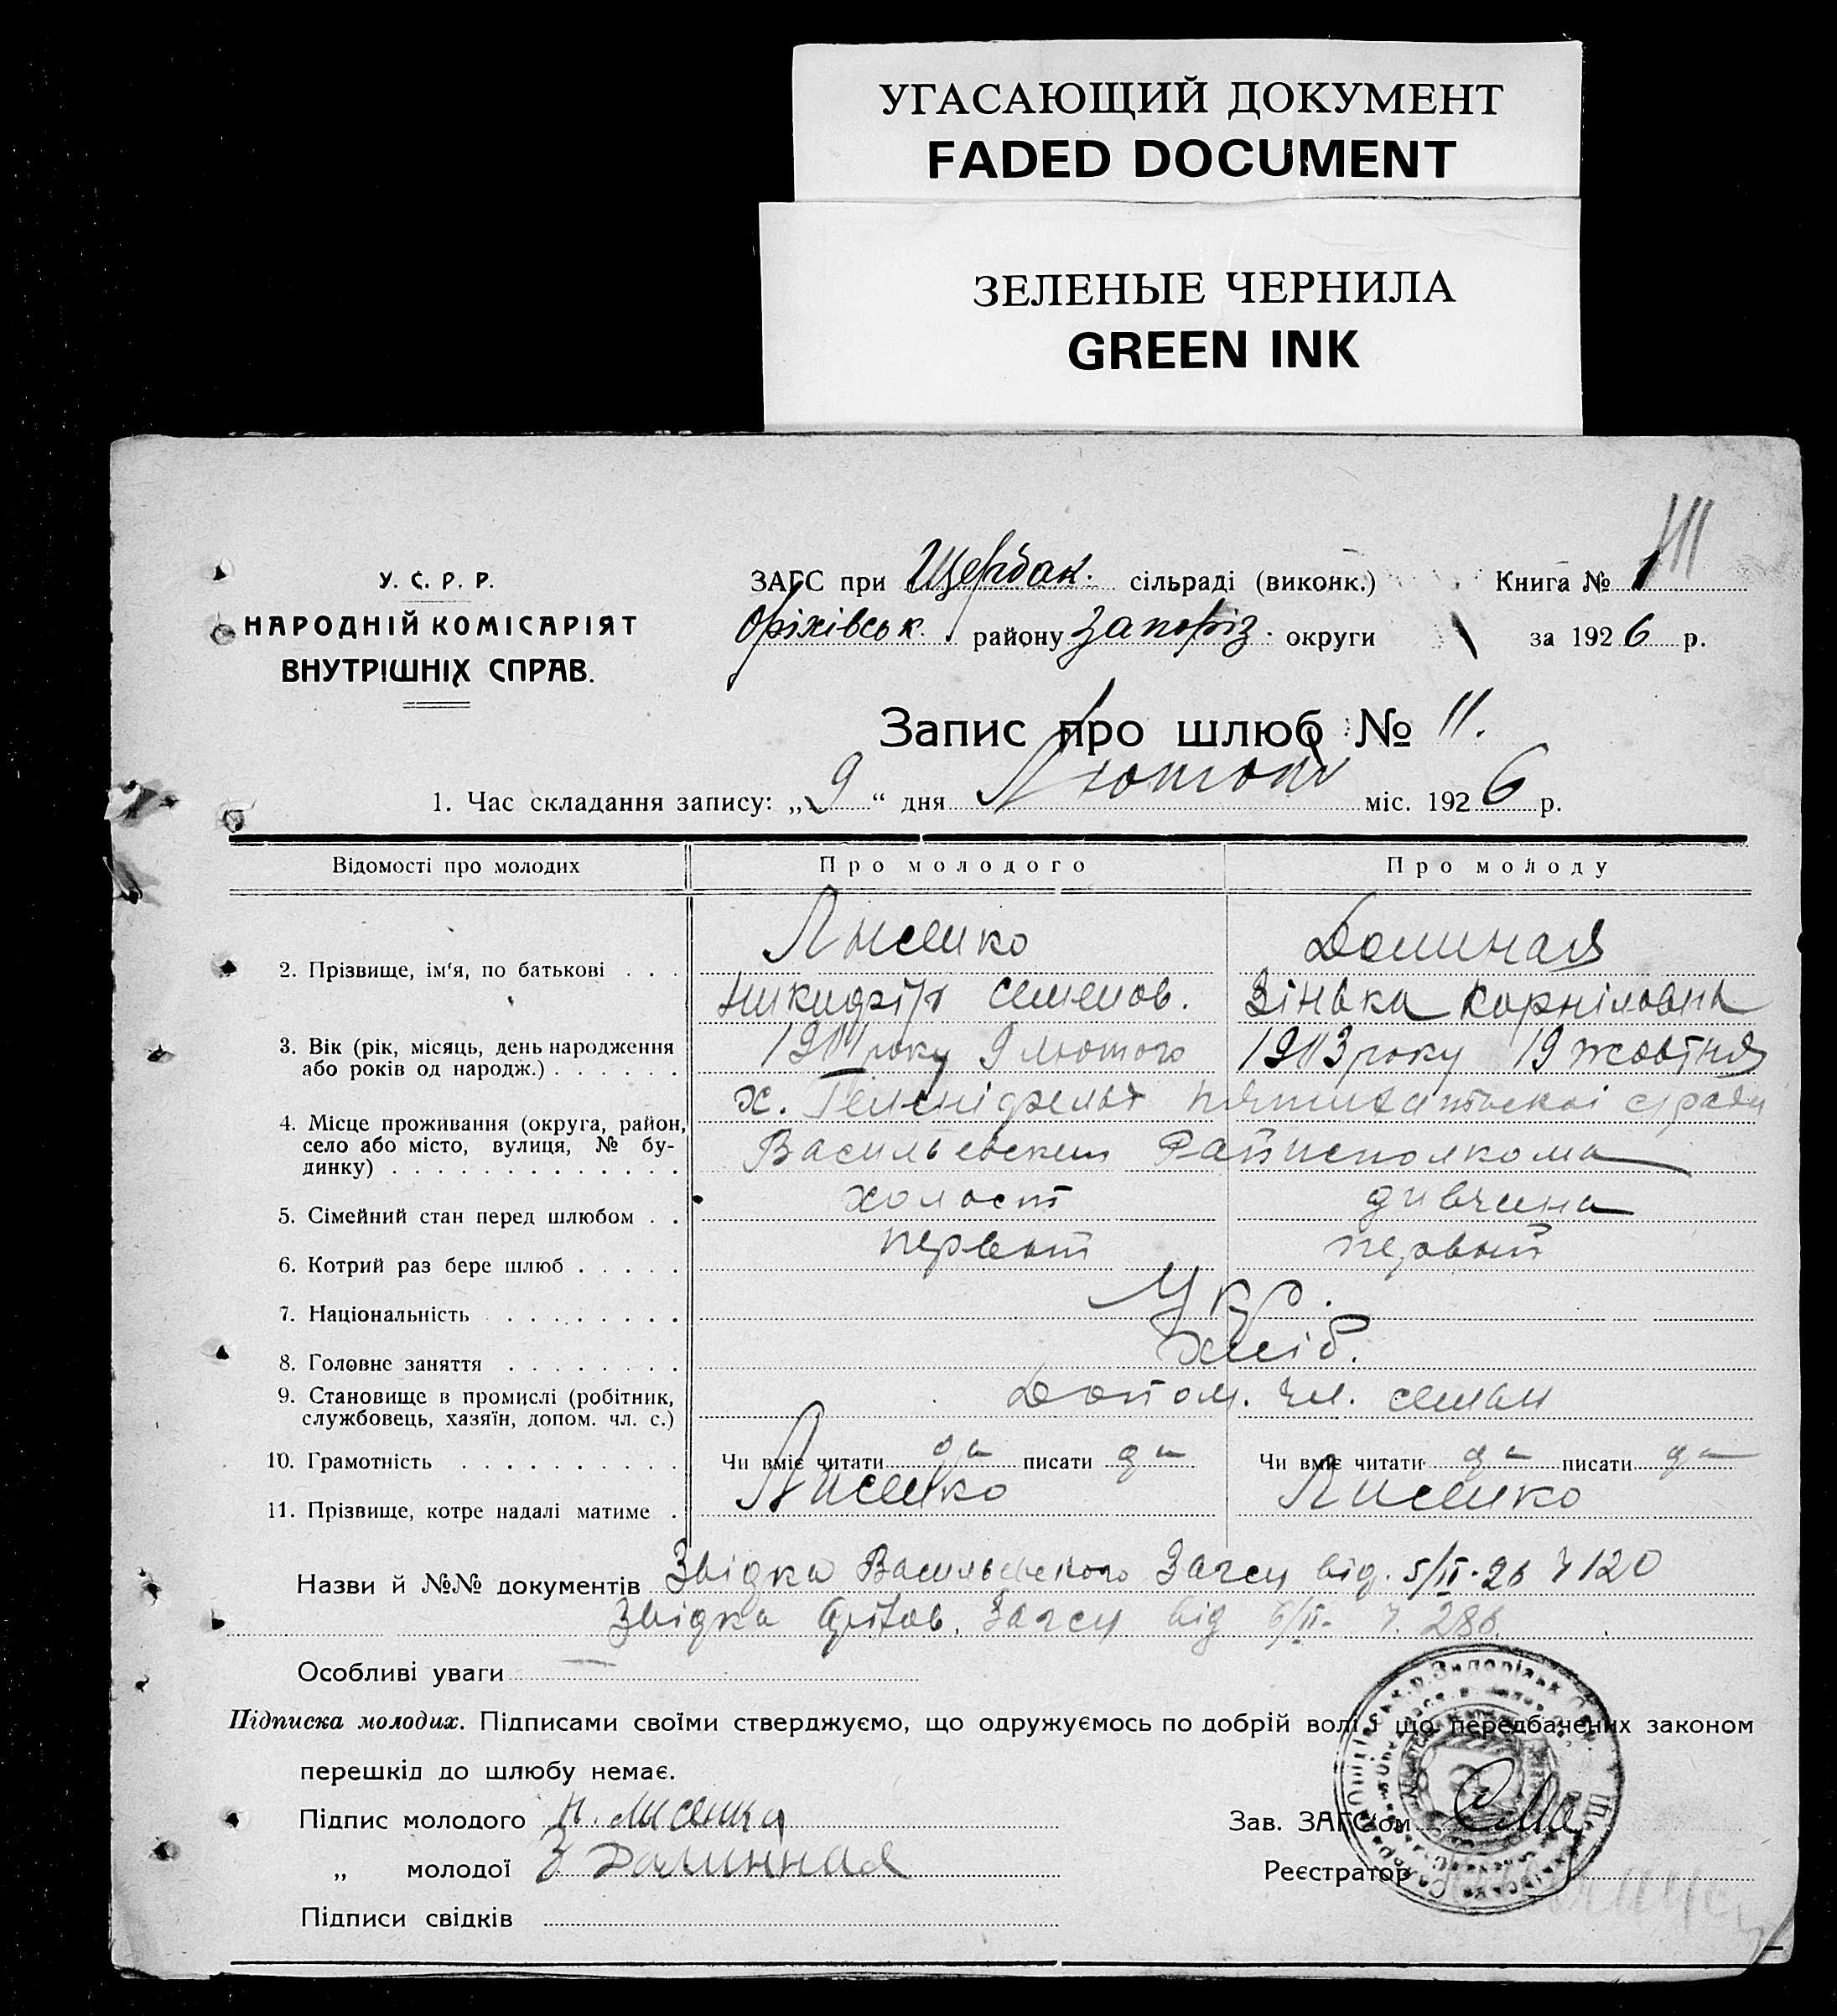 УГАСАЮЩИЙ ДОКУМЕНТ
FADED DOCUMENT
ЗЕЛЕНЫЕ ЧЕРНИЛА
GREEN INK
У. С. Р. Р.
НАРОДНІЙ КОМІСАРІЯТ
ВНУТРІШНІХ СПРАВ.
ЗАГС при Щербак. сільраді (виконк.)
Оріхівськ. району Запоріз. округи
Книга № 1
за 1926 р.
Запис про шлюб № 11.
1. Час складання запису: „9“ дня Лютого міс. 1926 р.
Відомості про молодих Про молодого Про молоду
2. Прізвище, ім'я, по батькові . . . Лисенко Долиная
Никифір Семенов. Зінька Корніловна
3. Вік (рік, місяць, день народження
або років од народж.) . . . . . . року 9 лютого 19 жовтня
4. Місце проживання (округа, район,
село або місто, вулиця, № бу-
динку) . . . . . . . . . . . . .
х. сіради
Васильевским Райисполкома
5. Сімейний стан перед шлюбом . . холост дивчина
6. Котрий раз бере шлюб . . . . . первый первый
7. Національність . . . . . . . . Укр.
8. Головне заняття . . . . . . . . Хліб.
9. Становище в промислі (робітник,
службовець, хазяїн, допом. чл. с.) Допом. чл. семьи
10. Грамотність . . . . . . . . . . Чи вміє читати да писати да Чи вміє читати да писати да
11. Прізвище, котре надалі матиме . Лисенко Лисенко
Назви й №№ документів Звідка Васильевского Загсу від. 5/II-26 ч 120
Звідка Загсу від 6/II- ч. 286.
Особливі уваги
Підписка молодих. Підписами своїми стверджуємо, що одружуємось по добрій волі і що передбачених законом
перешкід до шлюбу немає.
Підпис молодого Н. Лисенко
„ молодої З Долинная
Підписи свідків
Зав. ЗАГС'ом
Реєстратор